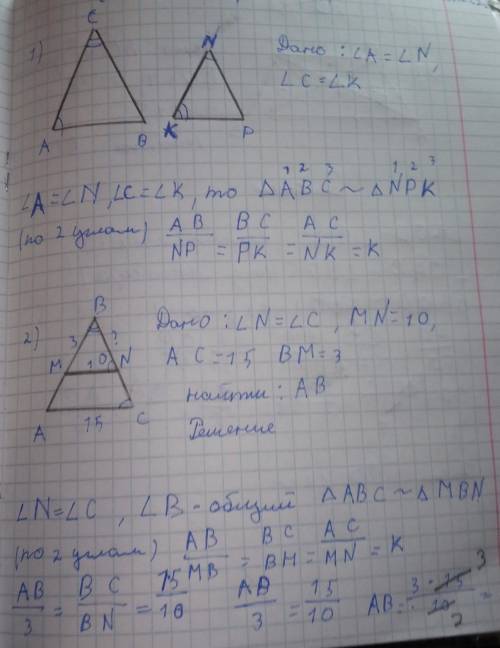 1)
C
A
B
N
K
P
Дано: ∠A = ∠N,
∠C = ∠K
∠A = ∠N, ∠C = ∠K, то △ABC ~ △NPK
1 2 3 1 2 3
(по 2 углам) AB/NP = BC/PK = AC/NK = K
2)
B
3 ?
M 10 N
A 15 C
Дано: ∠N = ∠C, MN = 10,
AC = 15 BM = 3
найти: AB
Решение
∠N = ∠C, ∠B - общий △ABC ~ △MBN
(по 2 углам) AB/MB = BC/BH = AC/MN = K
AB/3 = BC/BN = 15/10 AB/3 = 15/10 AB = 3·15/10 =
3
2